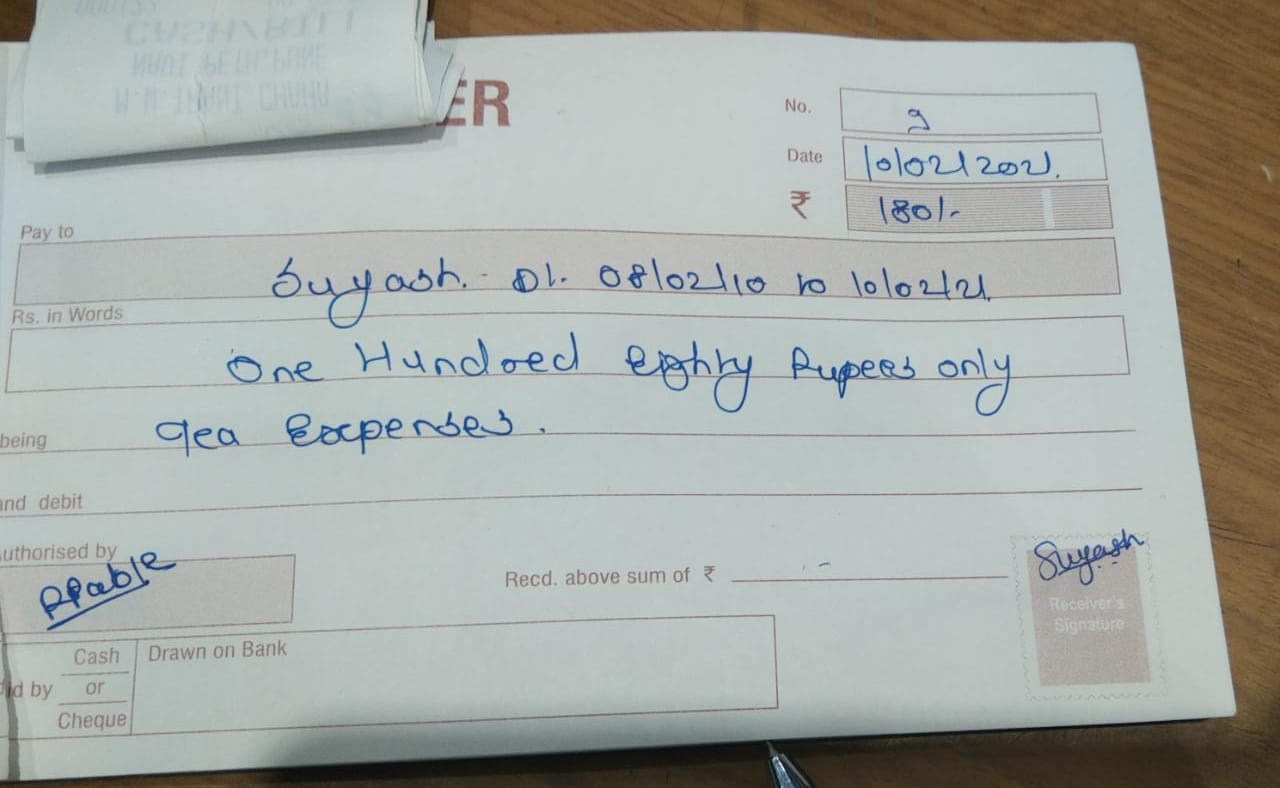 ER
No. 9
Date 10/02/2021.
₹ 180/-
Pay to
Suyash. - Dt. 08/02/10 to 10/02/21.
Rs. in Words
One Hundred Eighty Rupees only
being Tea Expenses.
and debit
uthorised by
Recd. above sum of ₹
Suyash
Receiver's
Signature
Cash
Drawn on Bank
id by
or
Cheque